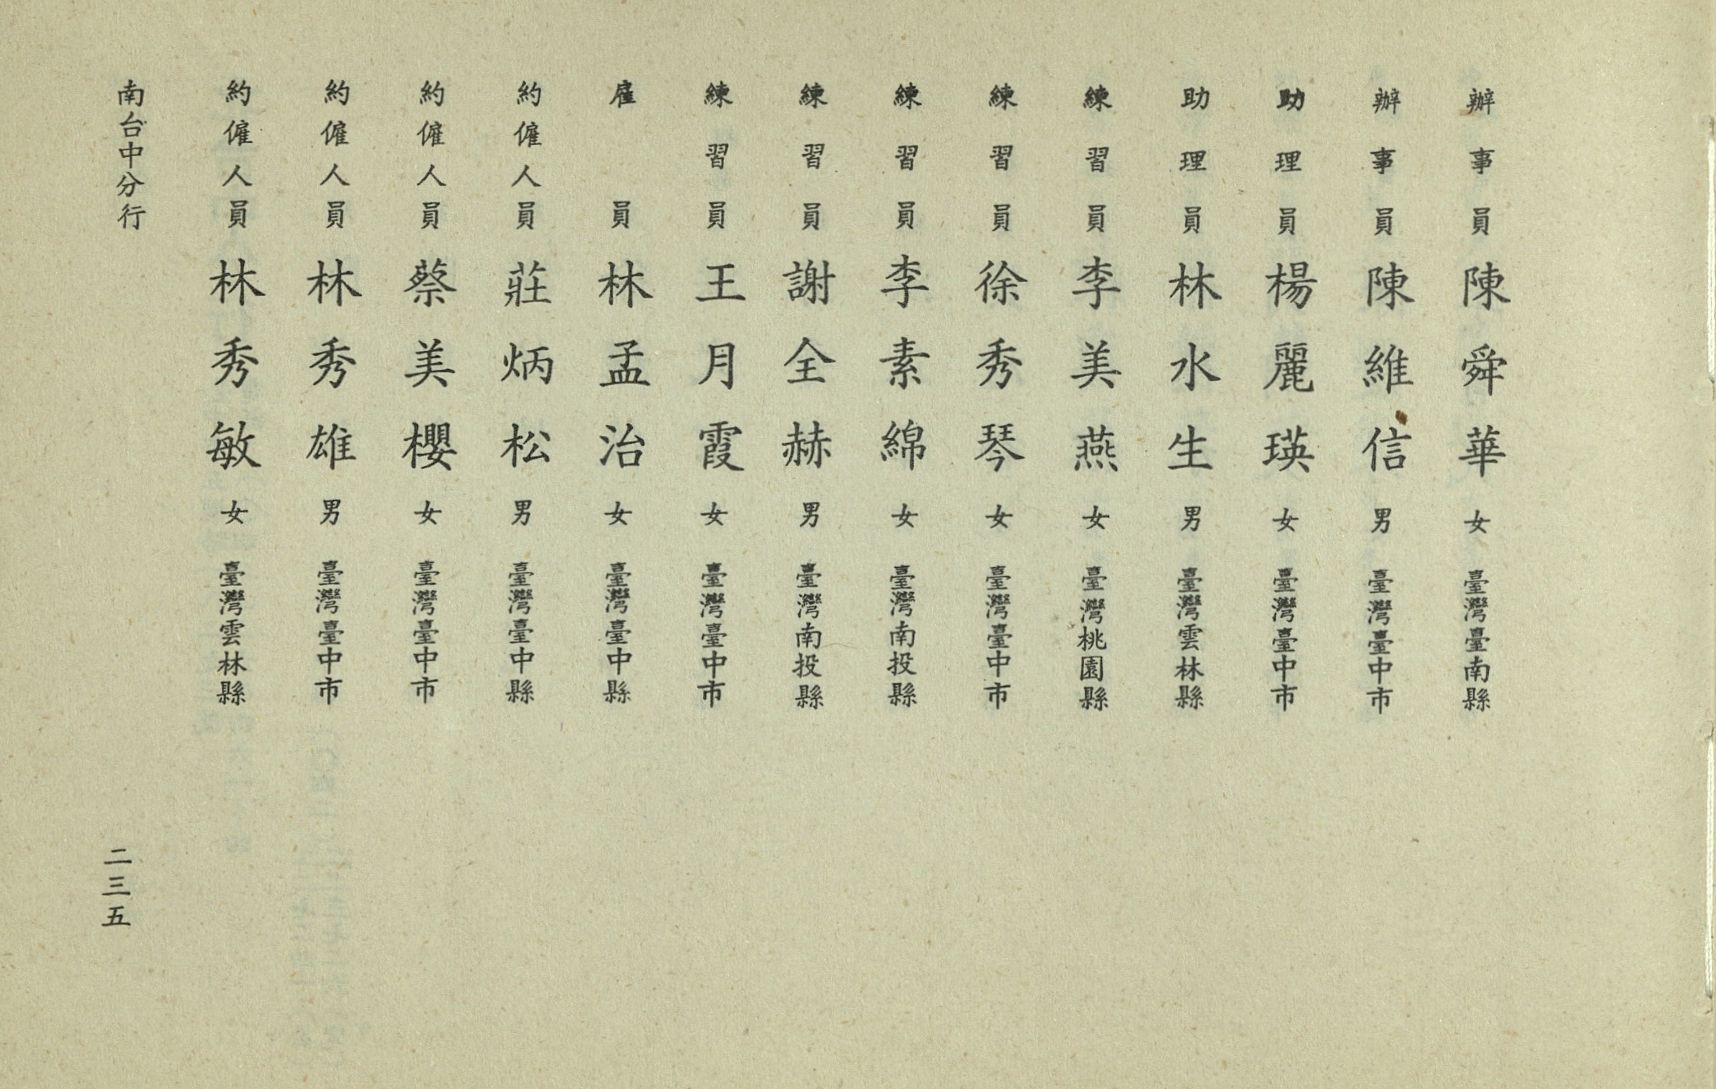 辦事員 陳舜華 女 臺灣臺南縣
辦事員 陳維信 男 臺灣臺中市
助理員 楊麗瑛 女 臺灣臺中市
助理員 林水生 男 臺灣雲林縣
練習員 李美燕 女 臺灣桃園縣
練習員 徐秀琴 女 臺灣臺中市
練習員 李素綿 女 臺灣南投縣
練習員 謝全赫 男 臺灣南投縣
練習員 王月霞 女 臺灣臺中市
雇員 林孟治 女 臺灣臺中縣
約僱人員 莊炳松 男 臺灣臺中縣
約僱人員 蔡美櫻 女 臺灣臺中市
約僱人員 林秀雄 男 臺灣臺中市
約僱人員 林秀敏 女 臺灣雲林縣
南台中分行
二三五